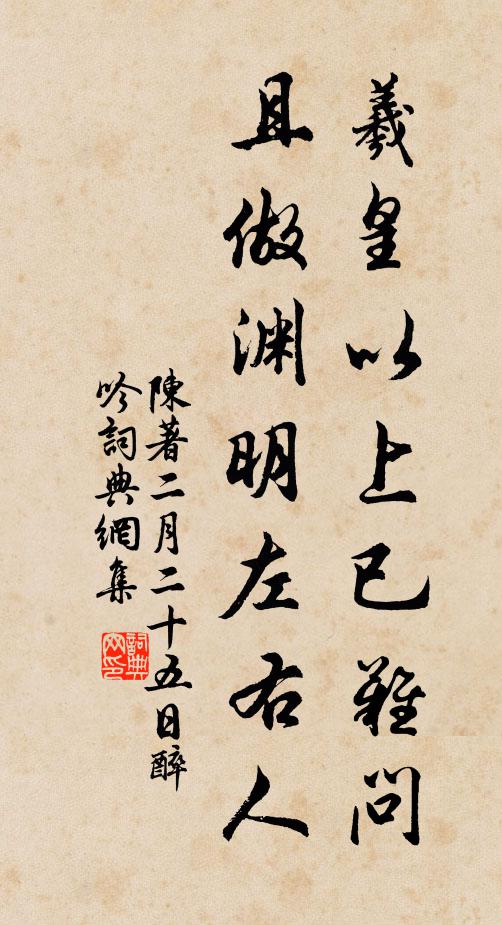 羲皇以上已難問
且做渊明左右人
陳著二月二十五日醉
吟詞典網集
詞典网印